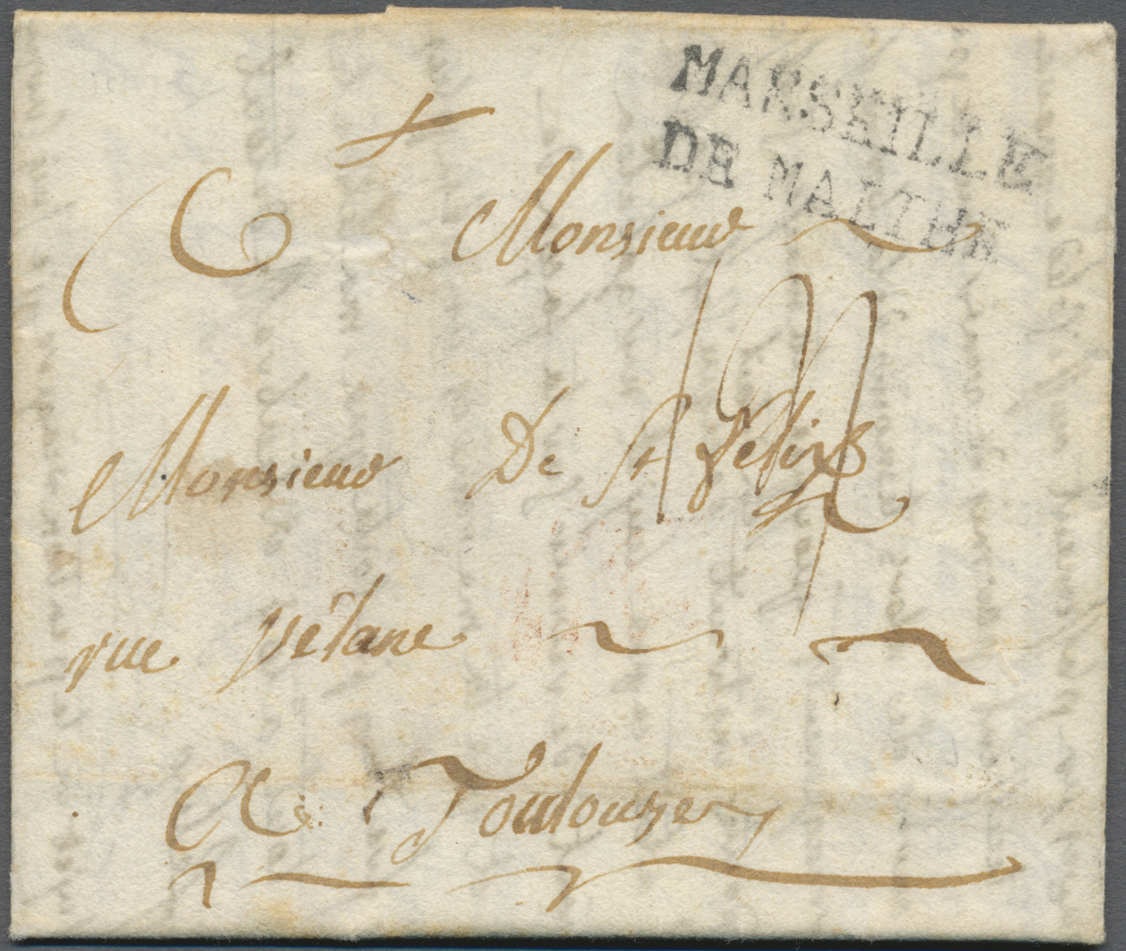 MARSEILLE
DE MALTHE
A Monsieur
Monsieur De St felix
rue vélane
A Toulouze